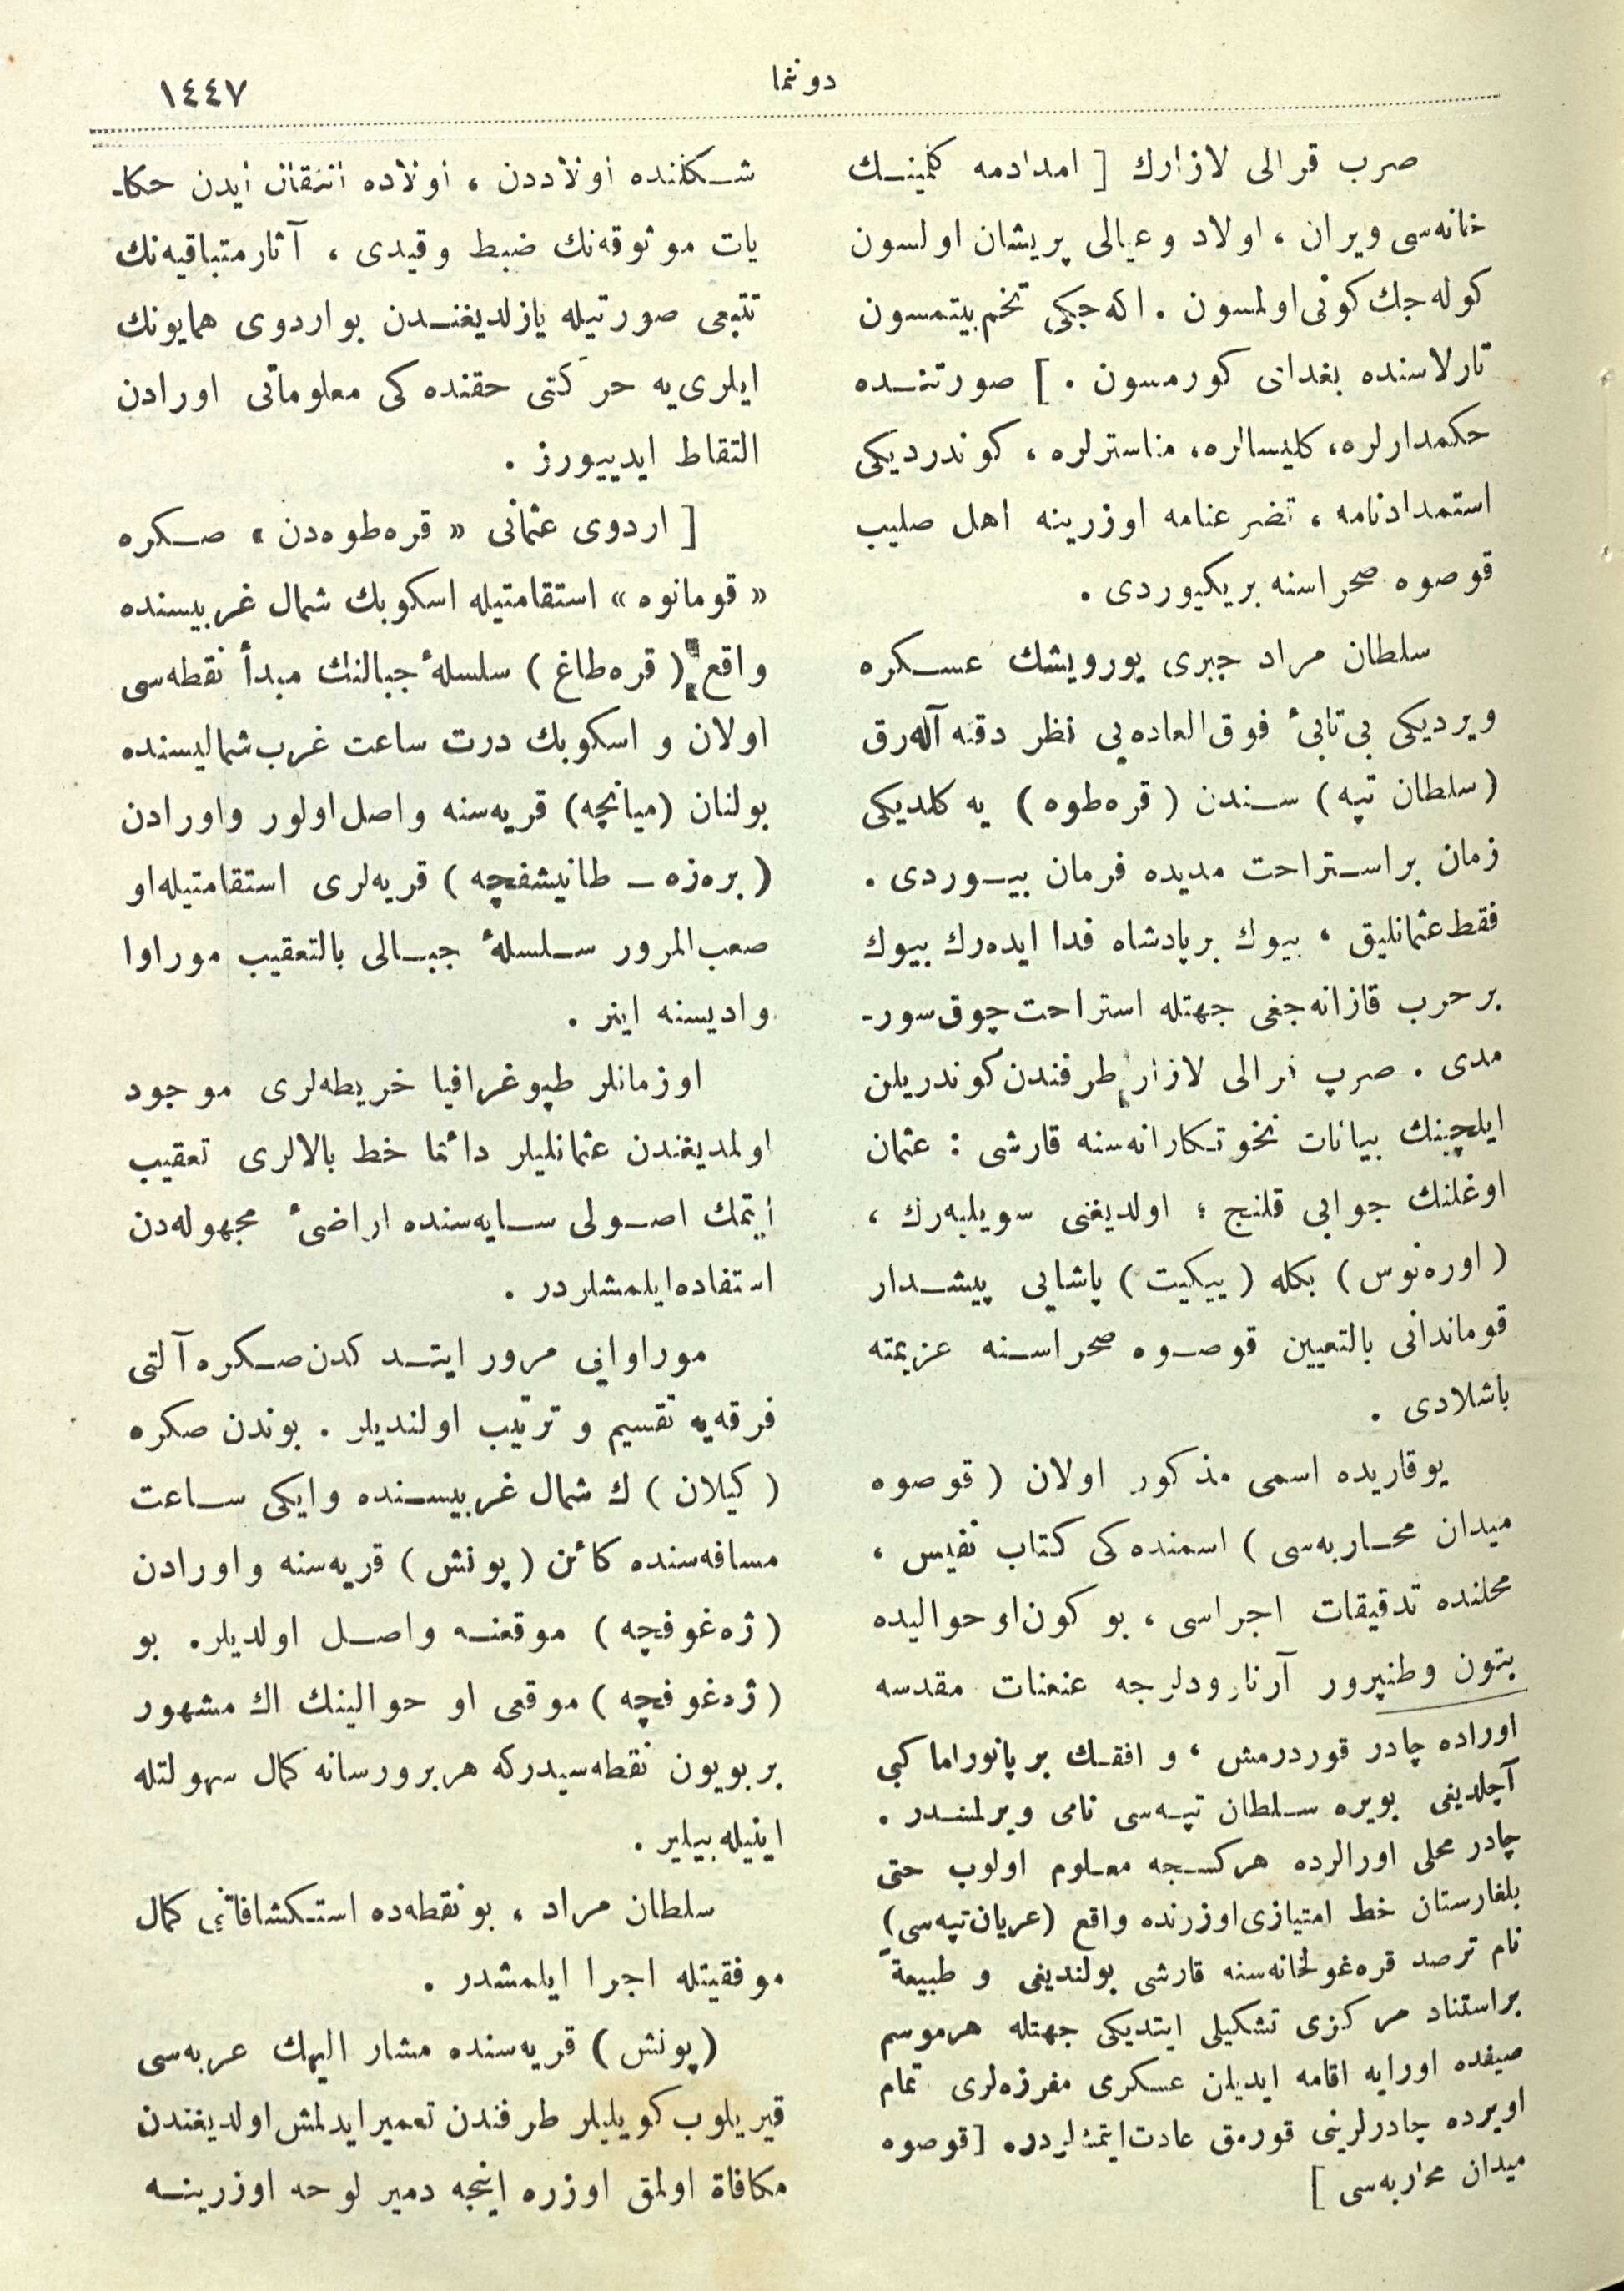 دوننما
١٤٤٧
صرب قرالی لازارك [ امدادمه كلمینـك
خانه‌سی ویران ، اولاد وعیالی پریشان اولسون
كوله جك كونی اولمسون . اكه جكی تخم بیتمسون
تارلاسنده بغدای كورمسون . ] صورتنـده
حكمدارلره، كلیسالره، مناسترلره ، كوندردیكی
استمدادنامه ، تضرعنامه اوزرینه اهل صلیب
قوصوه صحراسنه بریكیوردی .
سلطان مراد جبری یورویشك عسـكره
ویردیكی بی‌تابیٔ فوق‌العاده‌یی نظر دقته آله‌رق
(سلطان تپه) سـندن (قره‌طوه) یه كلدیكی
زمان براسـتراحت مدیده فرمان بیـوردی .
فقط عثمانلیق ، بیوك برپادشاه فدا ایده‌رك بیوك
برحرب قازانه‌جغی جهتله استراحت چوق سور-
مدی . صرپ قرالی لازار طرفندن كوندریلن
ایلچینك بیانات نخوتـكارانه‌سنه قارشی : عثمان
اوغلنك جوابی قلنج ؛ اولدیغنی سویلیه‌رك ،
( اوره‌نوس ) بكله ( ییكیت ) پاشایی پیشـدار
قوماندانی بالتعیین قوصـوه صحراسـنه عزیمته
باشلادی .
یوقاریده اسمی مذكور اولان ( قوصوه
میدان محـاربه‌سی ) اسمنده كی كتاب نفیس ،
محلنده تدقیقات اجراسی ، بو كون‌او حوالیده
بتون وطنپرور آرناوودلرجه عنعنات مقدسه
اوراده چادر قوردرمش ، و افقـك برپانوراما كبی
آچلدیغی بویره سـلطان تپـه‌سی نامی ویرلمشـدر .
چادر محلی اورالرده هركسـجه معـلوم اولوب حتی
بلغارستان خط امتیازی‌اوزرنده واقع (عریان‌تپه‌سی)
نام ترصد قره‌غولخانه‌سنه قارشی بولندیغی و طبیعةً
براستناد مركزی تشكیلی ایتدیكی جهتله هرموسم
صیفده اورایه اقامه ایدیلن عسكری مفرزه‌لری تمام
اویرده چادرلرینی قورمق عادت‌ایتمشلردر. [قوصوه
میدان محاربه‌سی ]
شـكلنده اولاددن ، اولاده انتقال ایدن حكا-
یات موثوقه‌نك ضبط وقیدی ، آثارمتباقیه‌نك
تتبعی صورتیله یازلدیغنـدن بواردوی همایونك
ایلری‌یه حركتی حقنده كی معلوماتی اورادن
التقاط ایدییورز .
[ اردوی عثمانی « قره‌طوه‌دن » صـكره
« قومانوه » استقامتیله اسكوبك شمال غربیسنده
واقع ( قره‌طاغ ) سلسلهٔ جبالنك مبدأ نقطه‌سی
اولان و اسكوبك درت ساعت غرب‌شمالیسنده
بولنان (میانچه) قریه‌سنه واصل‌اولور واورادن
( بره‌زه ـ طانیشفچه ) قریه‌لری استقامتیله‌او
صعب‌المرور سـلسلهٔ جبـالی بالتعقیب موراوا
وادیسنه اینر .
اوزمانلر طپوغرافیا خریطه‌لری موجود
اولمدیغندن عثمانلیلر دائما خط بالالری تعقیب
ایتمك اصـولی سـایه‌سنده اراضیٔ مجهوله‌دن
استفاده‌ایلمشلردر .
موراوایی مرور ایتـد كدن‌صـكره‌آلتی
فرقه‌یه تقسیم و ترتیب اولندیلر . بوندن صكره
( كیلان ) ك شمال غربیسـنده وایكی سـاعت
مسافه‌سنده كائن ( پونش ) قریه‌سنه واورادن
( ژه‌غوفچه ) موقعنـه واصـل اولدیلر. بو
( ژه‌غوفچه ) موقعی او حوالینك اك مشهور
بربویون نقطه‌سیدركه هربرورسانه كمال سهولتله
اینیله‌بیلیر .
سلطان مراد ، بونقطه‌ده استـكشافاتی كمال
موفقیتله اجرا ایلمشدر .
(پونش ) قریه‌سنده مشار الیهك عربه‌سی
قیریلوب كویلیلر طرفندن تعمیرایدلمش‌اولدیغندن
مكافاة اولمق اوزره اینجه دمیر لوحه اوزرینـه